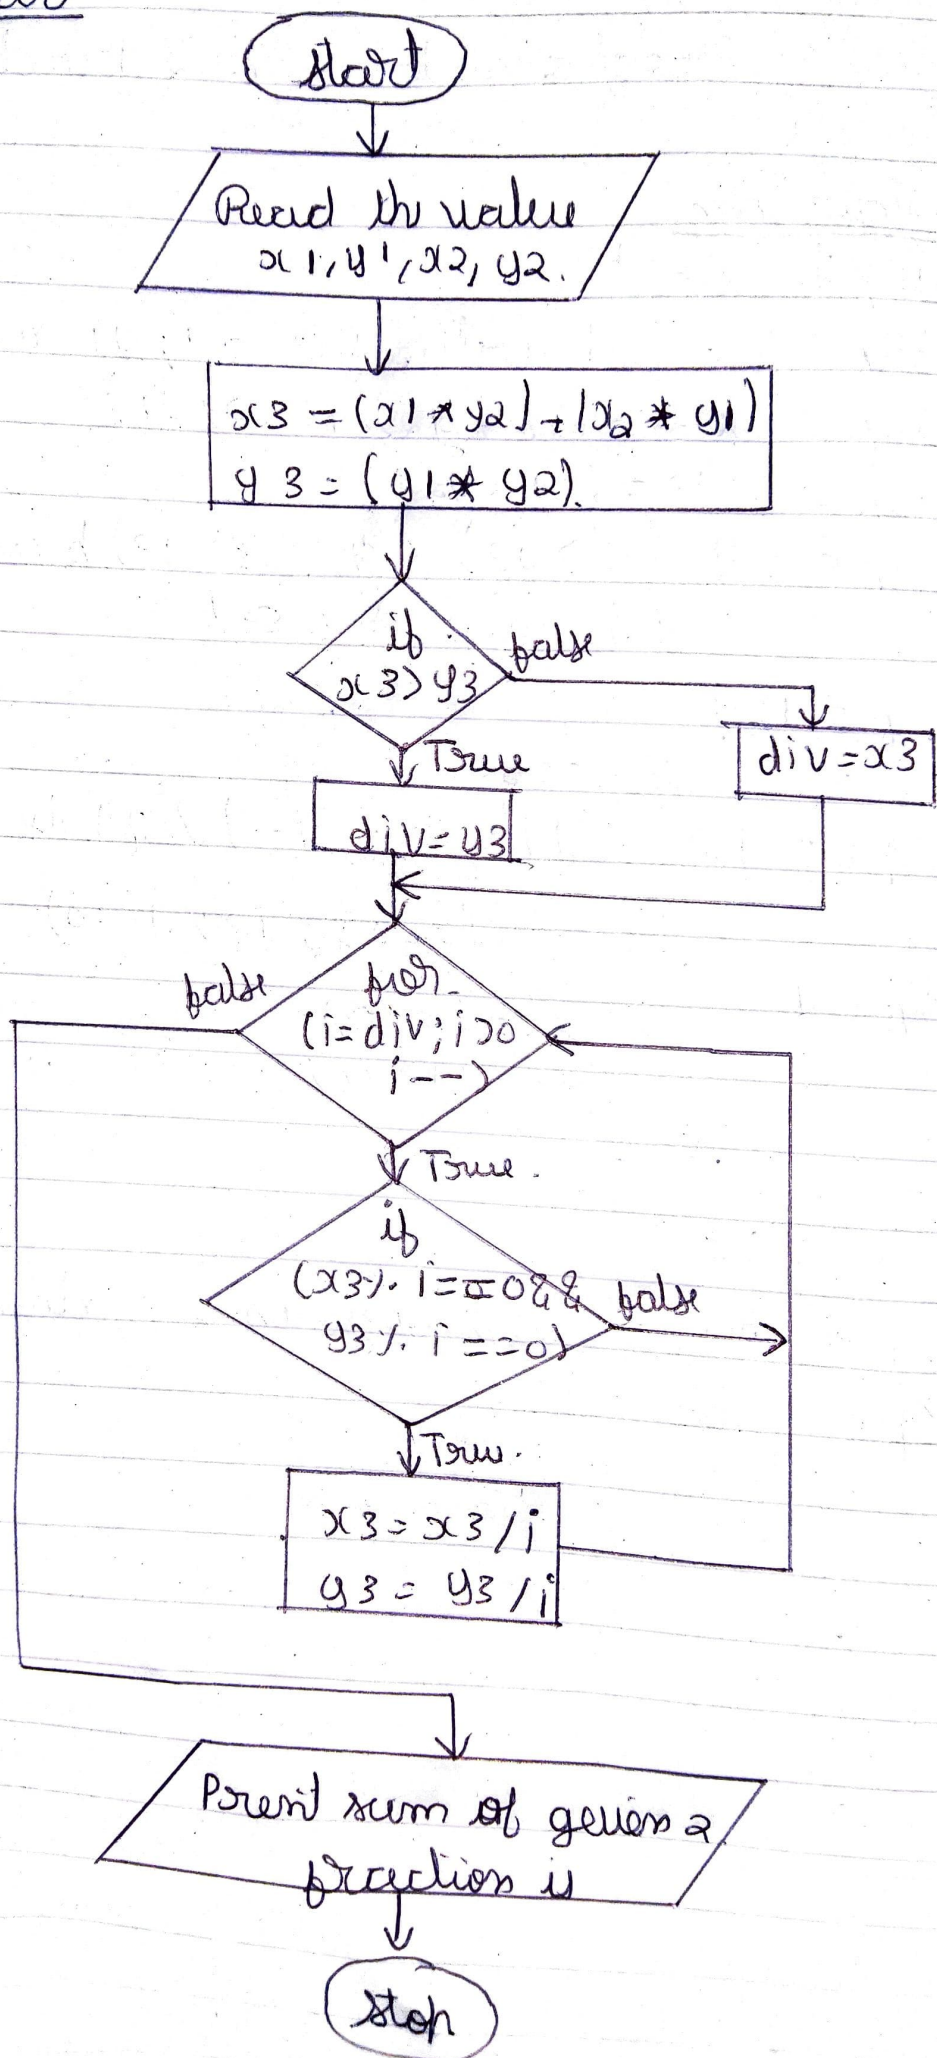 start
Read the value
x1, y1, x2, y2.
x3 = (x1 * y2) + (x2 * y1)
y3 = (y1 * y2).
if
x3 > y3
false
True
div = x3
div = y3
false
for
(i = div; i > 0
i--)
True.
if
(x3 % i == 0 &&
y3 % i == 0)
false
True.
x3 = x3 / i
y3 = y3 / i
Print sum of given 2
fraction is
stop